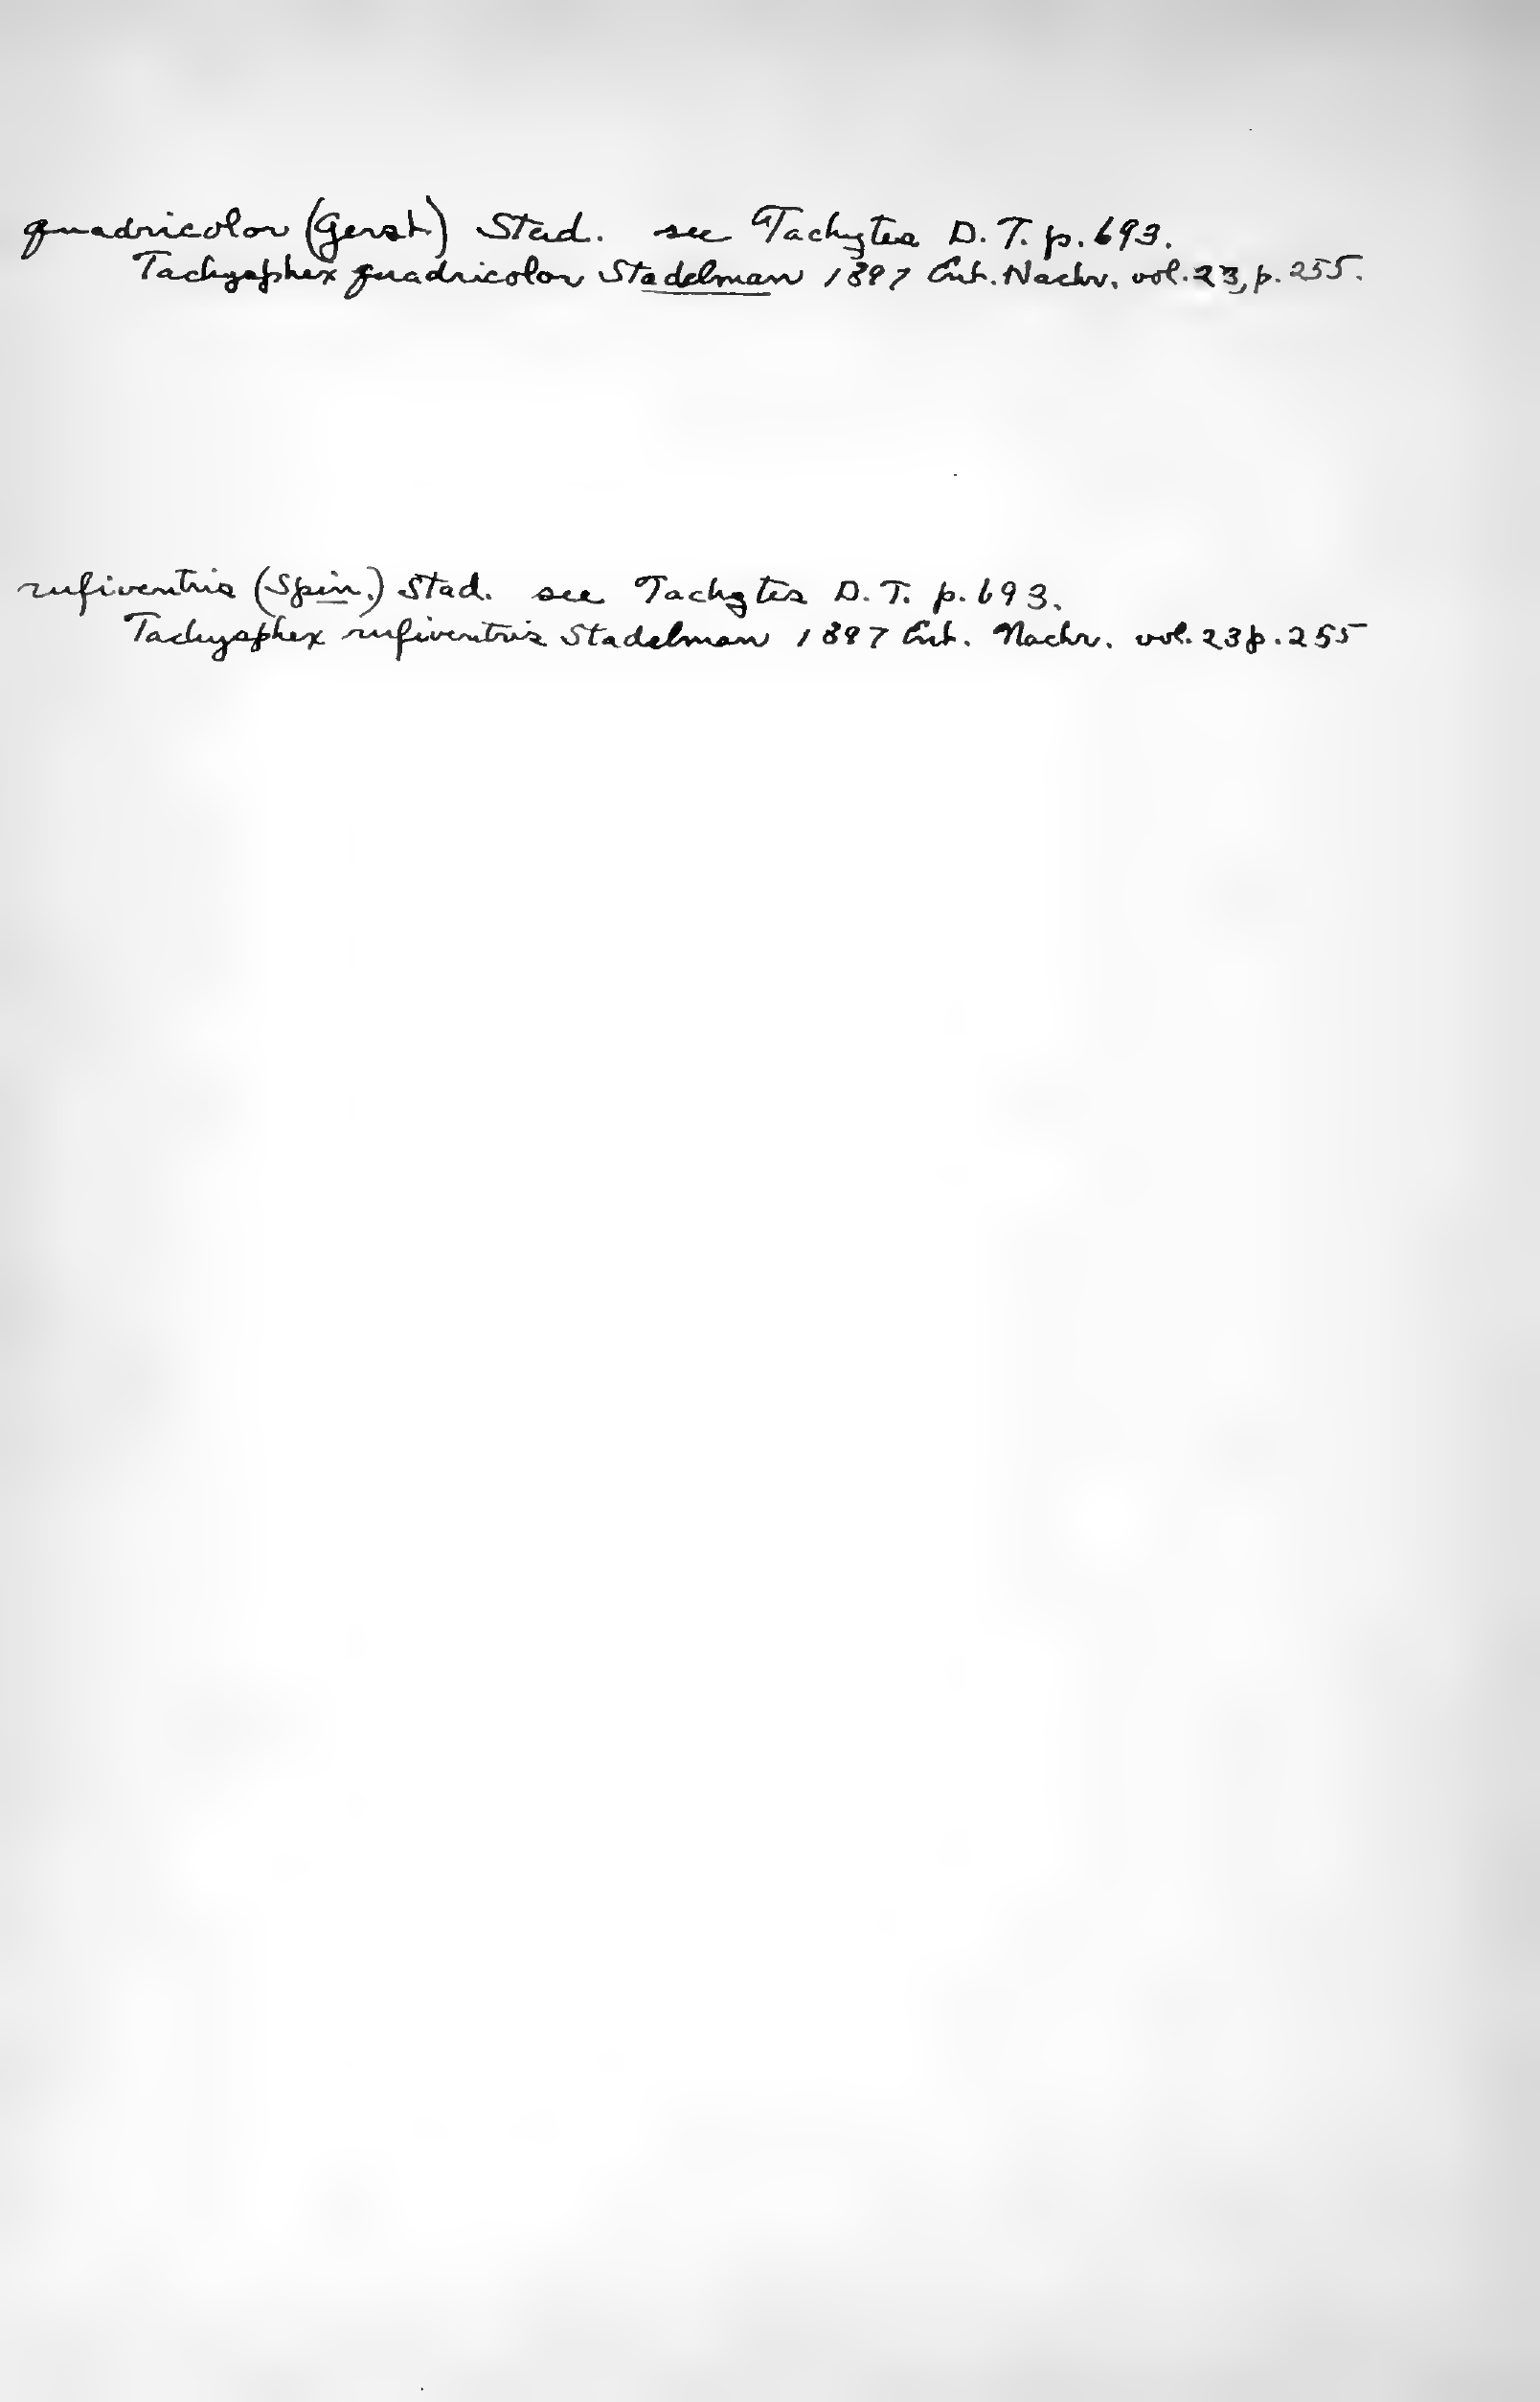 quadricolor (Gerst) Stad. see Tachytes D. T. p. 693.
Tachysphex quadricolor Stadelman 1897 Ent. Nachr. vol. 23, p. 255.
rufiventris (Spin.) Stad. see Tachytes D. T. p. 693.
Tachysphex rufiventris Stadelman 1897 Ent. Nachr. vol. 23 p. 255